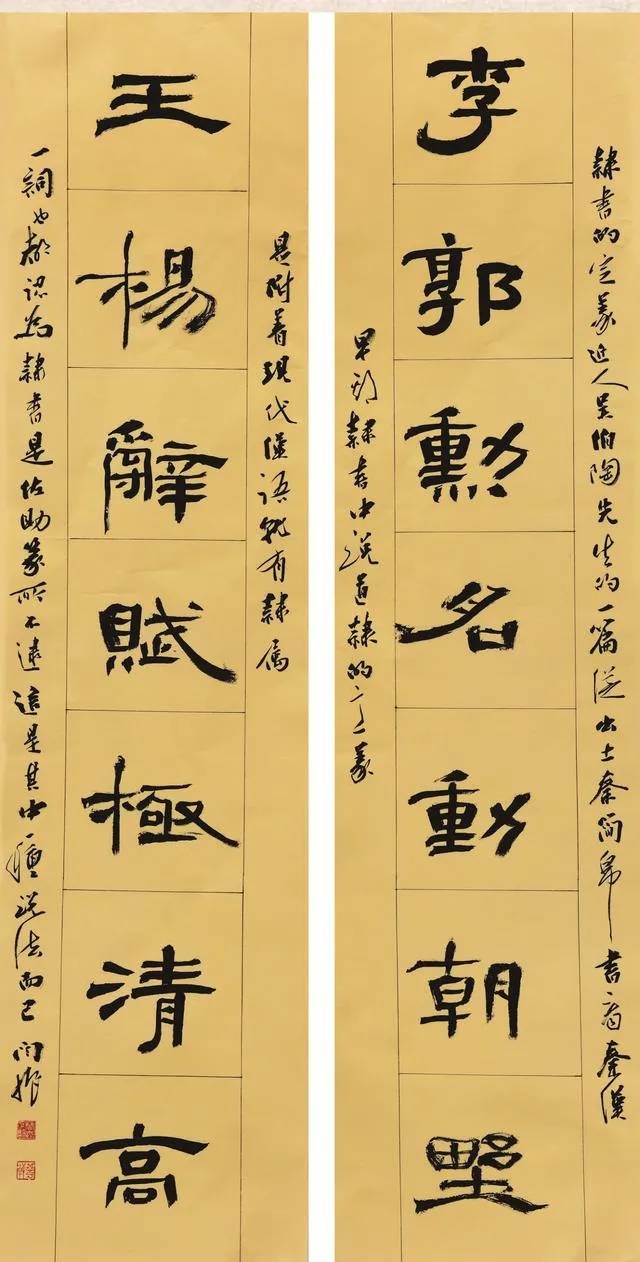 李郭勳名動朝野
隸書的定義近人吳伯陶先生的一篇從出土秦簡帛書看秦漢
早期隸書中說道隸的定義
王楊辭賦極清高
是附着現代漢語就有隸屬
一詞也都認為隸書是佐助篆所不逮這是其中一種說法而已